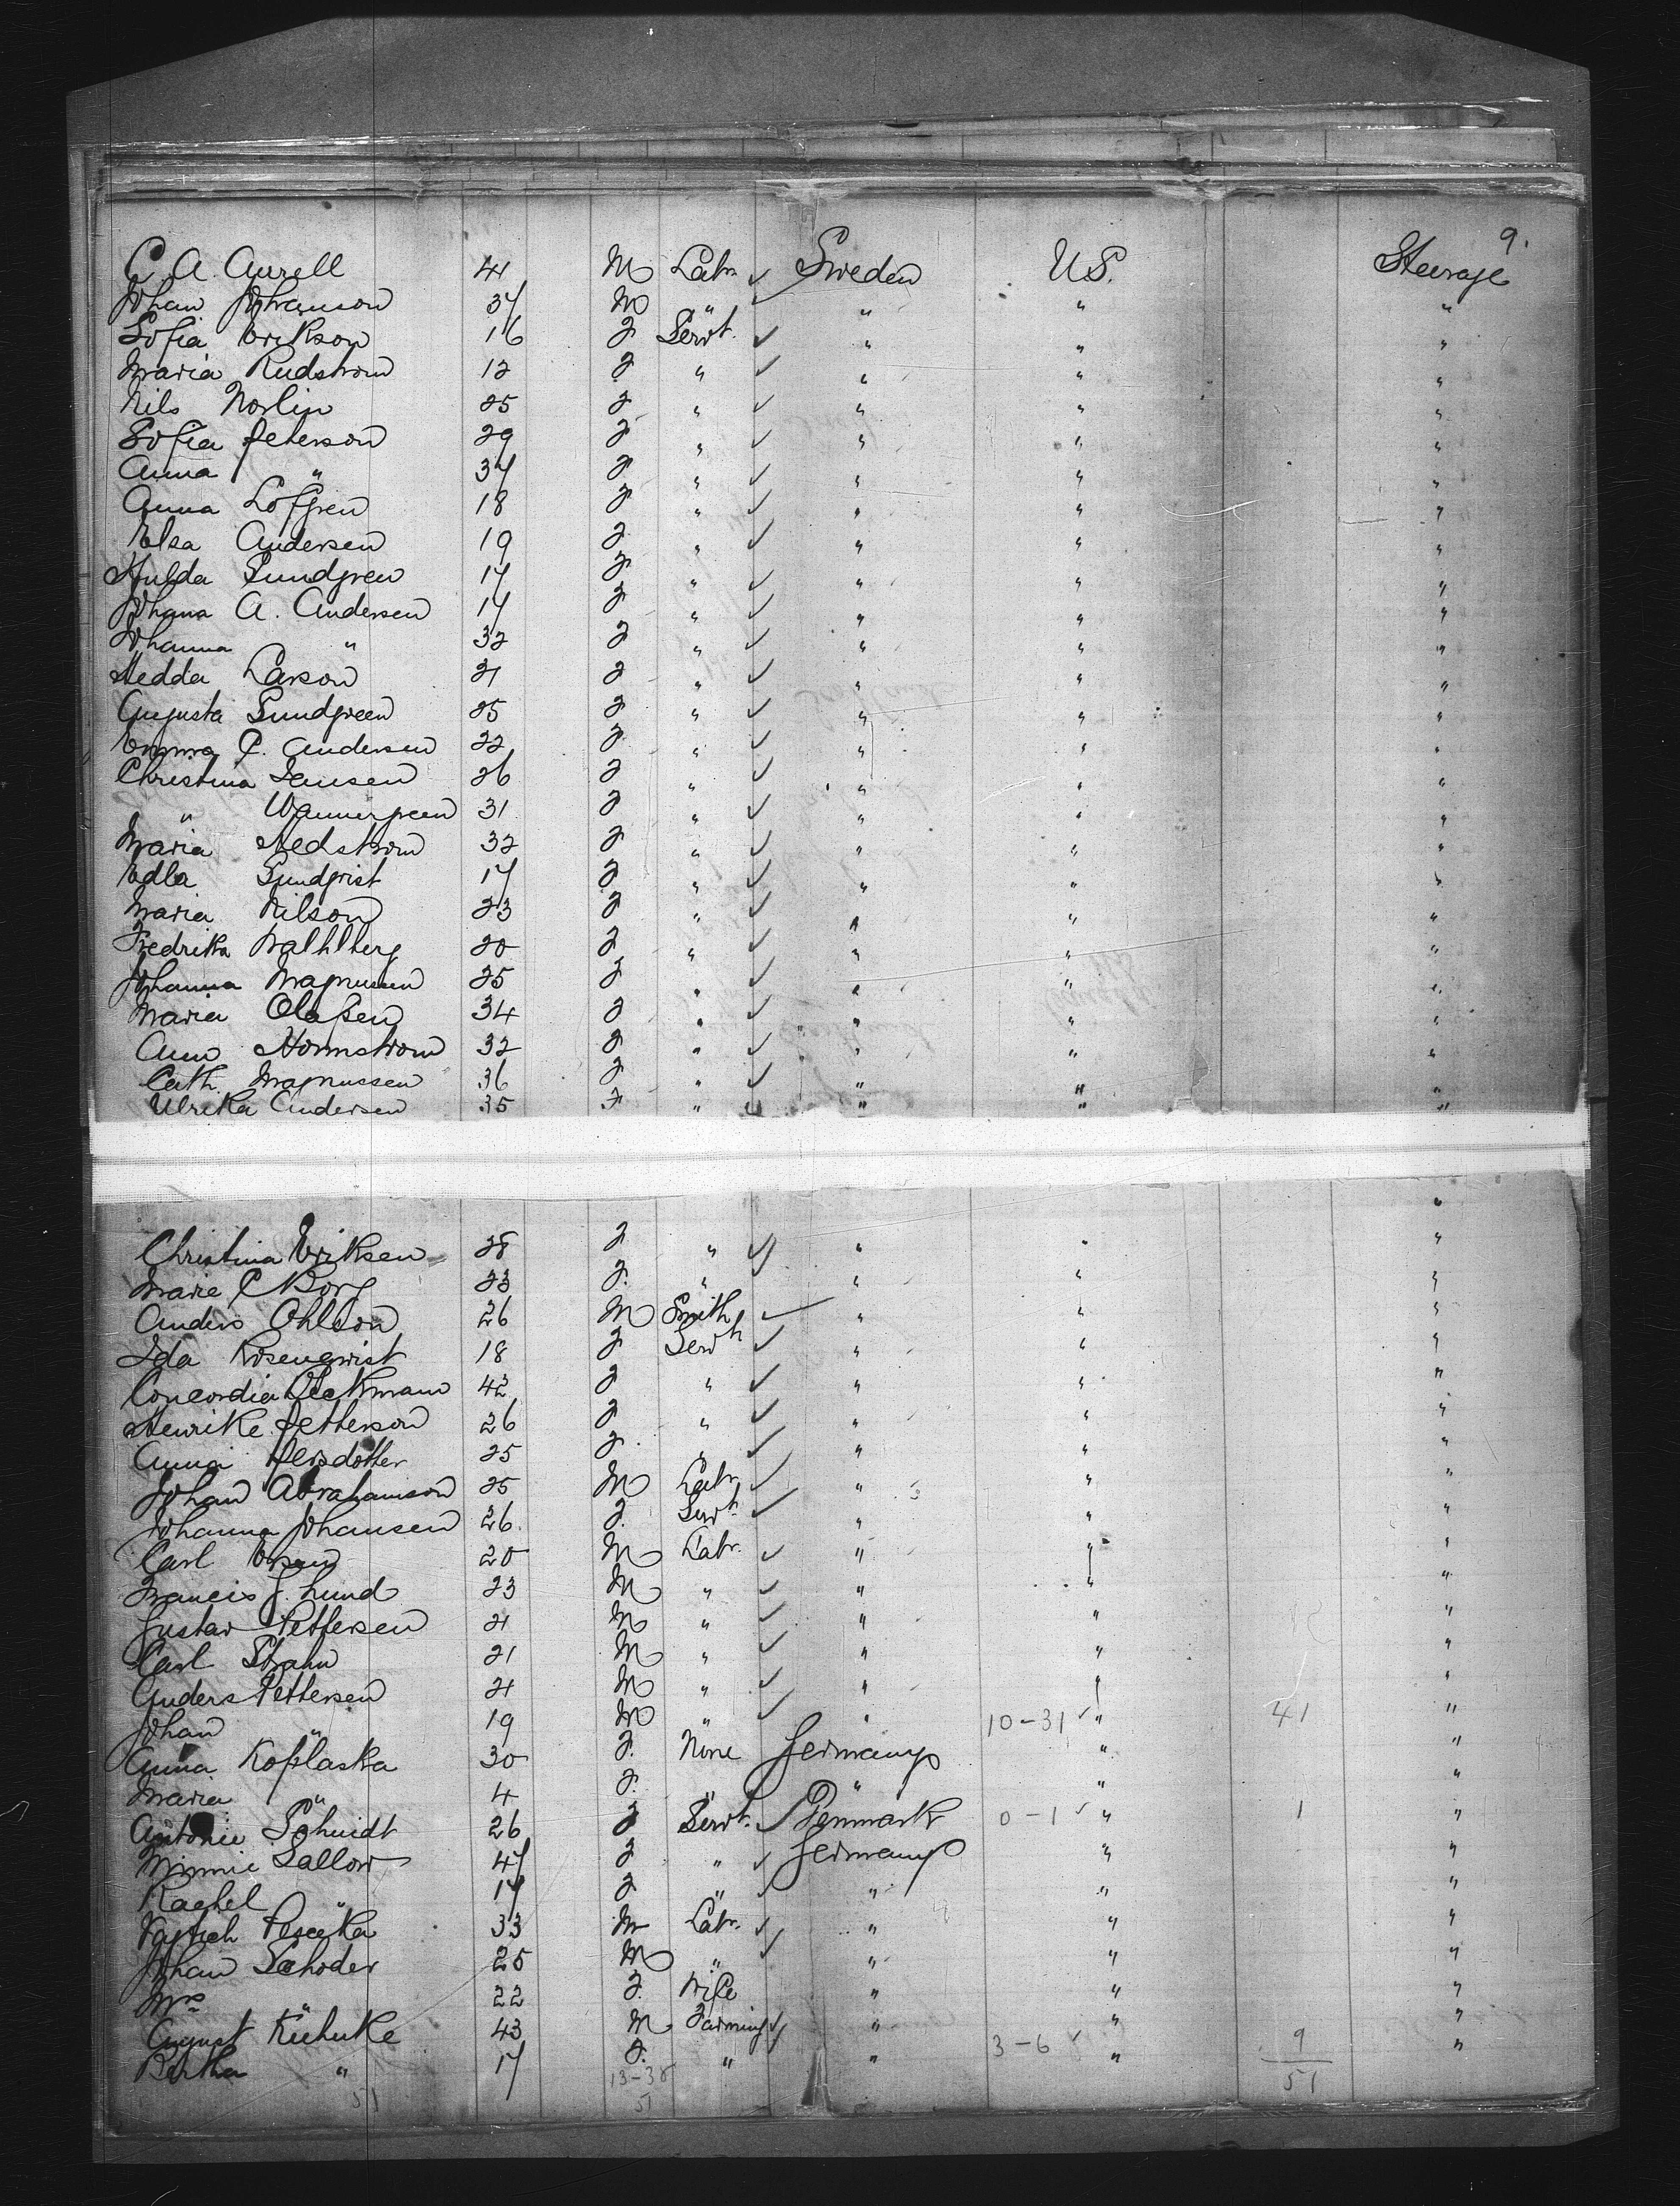 9.
C A. Aurell 41 M Labr ✓ Sweden U.S. Steerage
Johan Johanson 37 M " ✓ " " "
Sofia Erikson 16 F Servt. ✓ " " "
Maria Rudstrom 12 F " ✓ " " "
Nils Norlin 25 F " ✓ " " "
Sofia Peterson 29 F " ✓ " " "
Anna " 37 F " ✓ " " "
Anna Lofgren 18 F " ✓ " " "
Elsa Andersen 19 F " ✓ " " "
Hulda Sundgren 17 F " ✓ " " "
Johana A. Andersen 17 F " ✓ " " "
Johanna " 32 F " ✓ " " "
Hedda Larson 21 F " ✓ " " "
Augusta Sundgreen 25 F " ✓ " " "
Emma C. Andersen 22 F " ✓ " " "
Christina Jensen 26 F " ✓ " " "
" Wannergreen 31 F " ✓ " " "
Maria Hedstrom 32 F " ✓ " " "
Edla Sundqvist 17 F " ✓ " " "
Maria Nilson 23 F " ✓ " " "
Fredrika Wahlberg 20 F " ✓ " " "
Johanna Magnussen 25 F " ✓ " " "
Maria Olafsen 34 F " ✓ " " "
Ann Hornstrom 32 F " ✓ " " "
Cath. Magnussen 36 F " ✓ " " "
Ulrika Andersen 35 F " ✓ " " "
"
Christina Eriksen 28 F " ✓ " " "
Marie C Borg 23 F. " " " "
Anders Ohlson 26 M Smith ✓ " " "
Ida Rosenqvist 18 F Servt ✓ " " "
Concordia Oeckman 42 F " ✓ " " "
Henrike Petterson 26 F " ✓ " " "
Anna Persdotter 25 F. " ✓ " " "
Johan Abrahamson 25 M Labr ✓ " " "
Johanna Johansen 26. F. Servt ✓ " " "
Carl 20 M Labr. ✓ " " "
Francis J. Lund 23 M " ✓ " " "
Gustav Pettersen 21 M " ✓ " " "
Carl Strahn 21 M " ✓ " " "
Anders Pettersen 21 M " ✓ " " "
Johan " 19 M " ✓ " 10-31 ✓ " 41 "
Anna Koplaska 30 F. None Germany " "
Maria " 4 F. " " " "
Antonie Schmidt 26 F Servt. ✓ Denmark 0-1 ✓ " 1 "
Minnie Sallow 47 F " ✓ Germany " "
Rachel " 17 F " ✓ " " "
33 M Labr. ✓ " " "
Johan Schoder 25 M " ✓ " " "
Mrs " 22 F. Wife " " "
August Kuhnke 43 M Farming ✓ " " "
Bertha " 17 F. " " 3-6 ✓ " 9 "
51 13-38 51
51